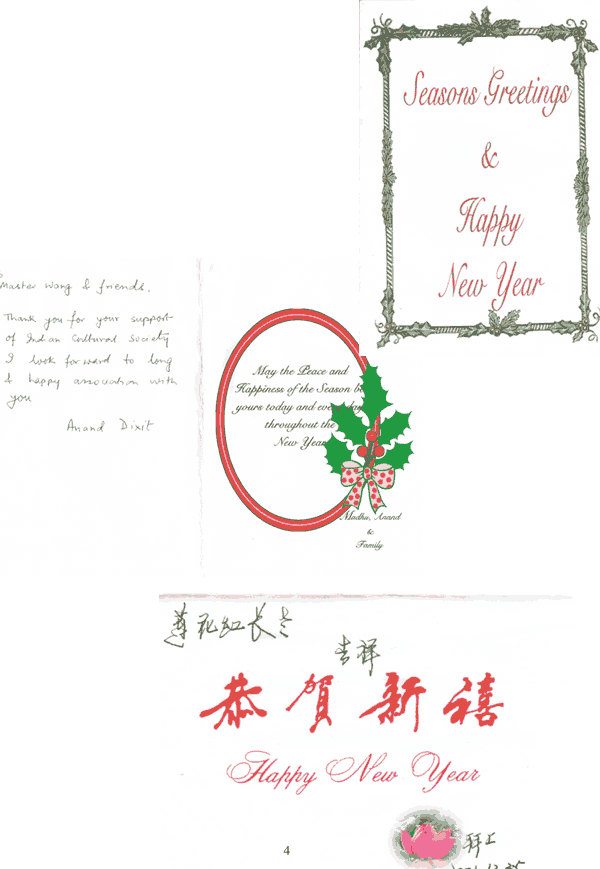 Seasons Greetings
&
Happy
New Year
Master Wang & friends,
Thank you for your support
of Indian Cultural Society
I look forward to long
& happy association with
you
Anand Dixit
May the Peace and
Happiness of the Season be
yours today and every day
throughout the
New Year
Madhu, Anand
&
Family
莲花 长
吉祥
恭贺新禧
Happy New Year
拜上
4